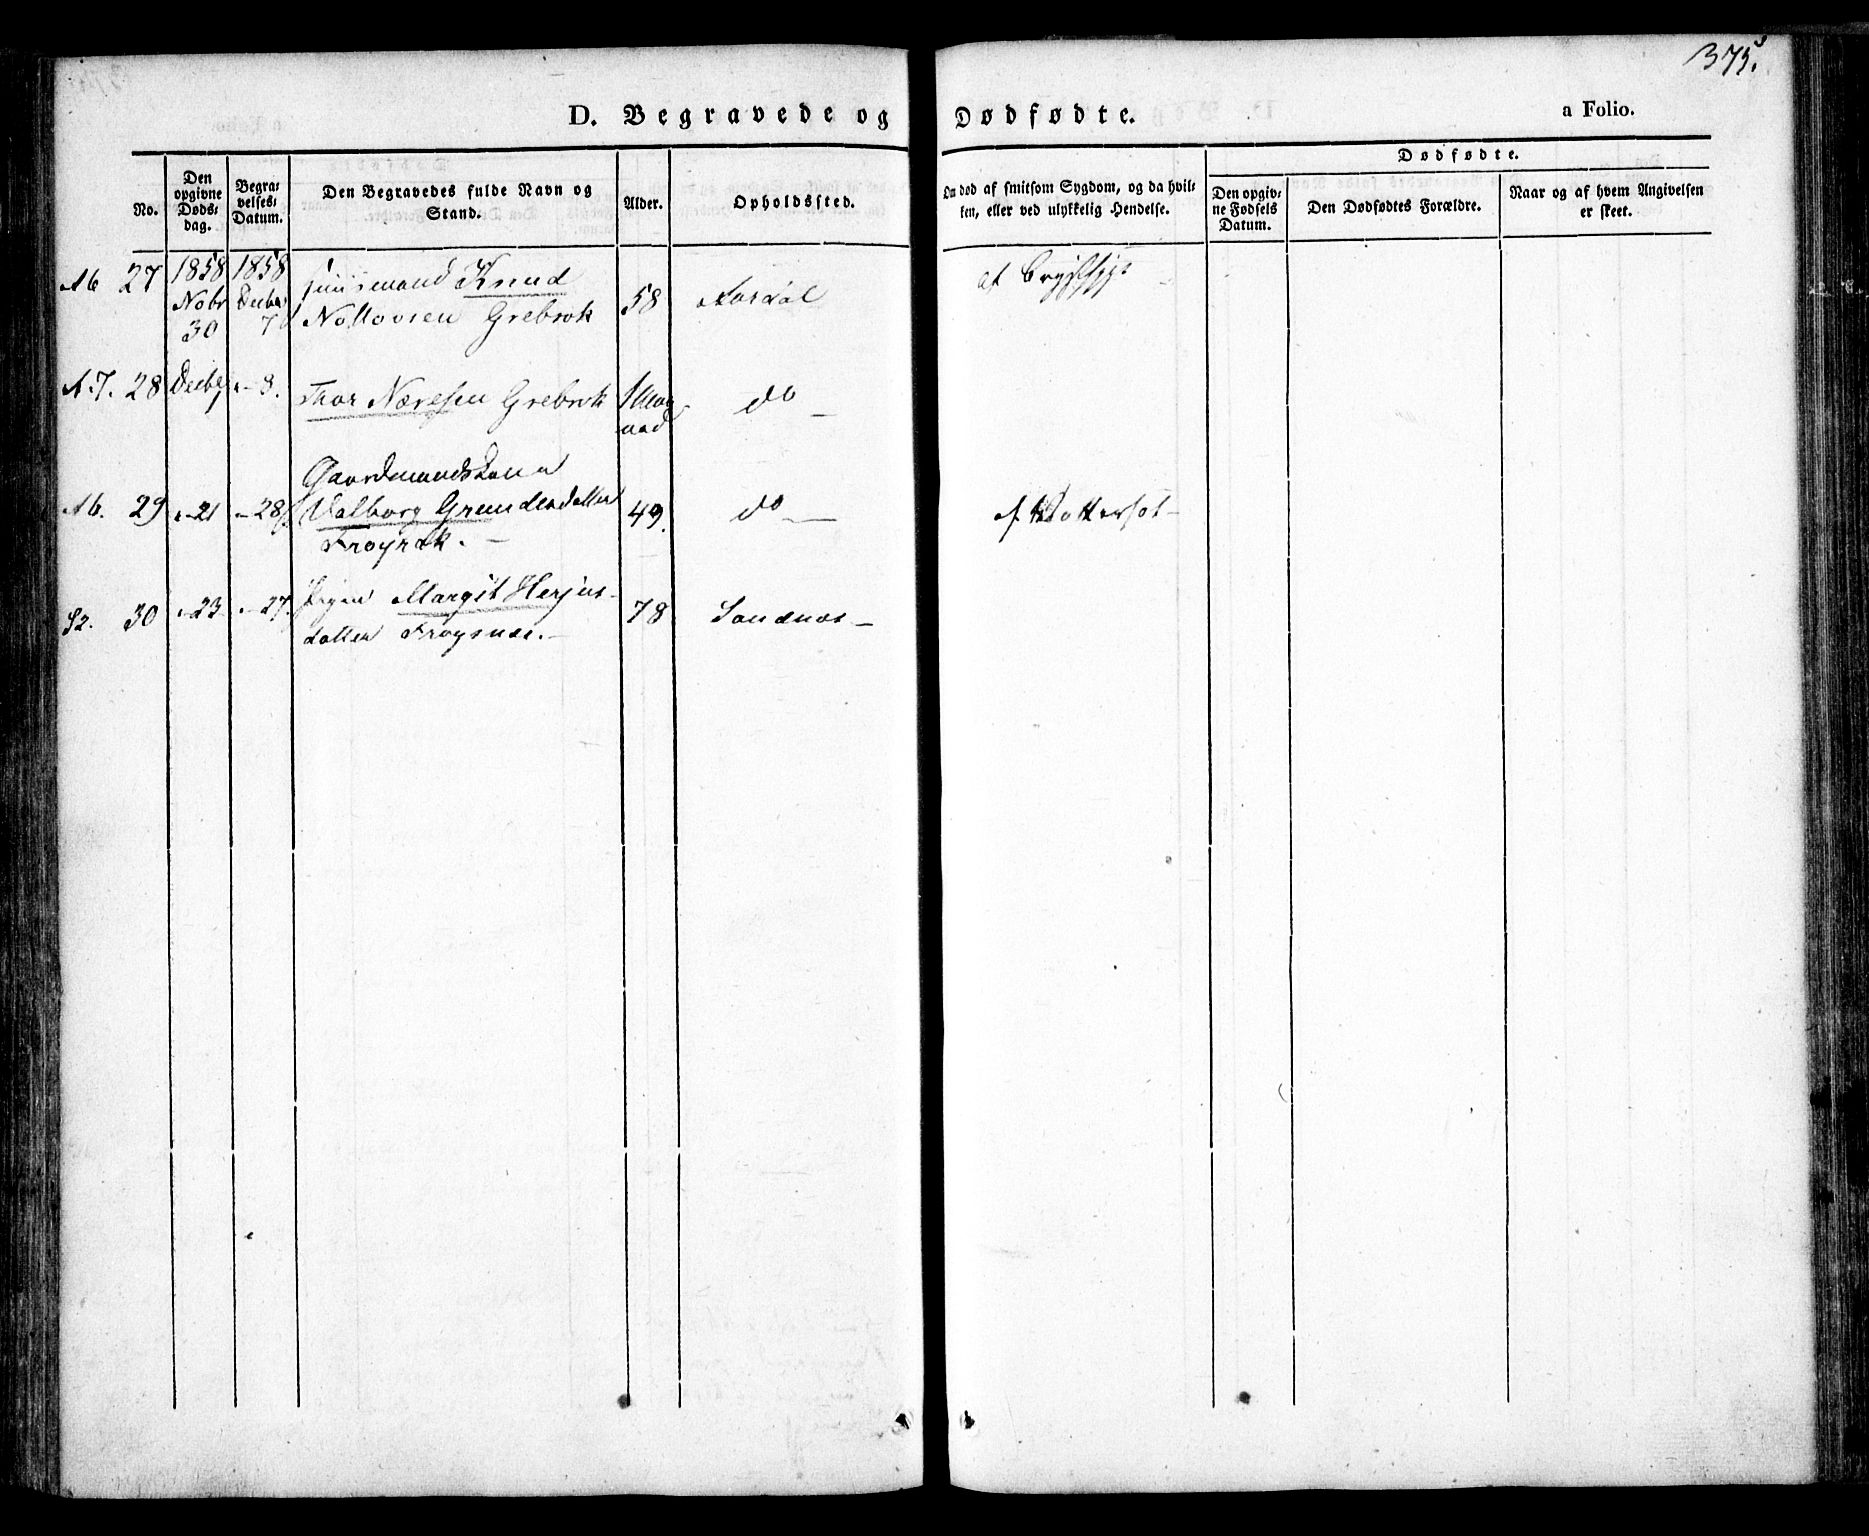 375.
D. Begravede og Dødfødte. a Folio.
No.
Den opgivne Døds-dag.
Begra-velses-Datum.
Den Begravedes fulde Navn og Stand.
Alder.
Opholdssted.
Om død af smitsom Sygdom, og da hvil-ken, eller ved ulykkelig Hendelse.
Dødfødte.
Den opgiv-ne Fødsels Datum.
Den Dødfødtes Forældre.
Naar og af hvem Angivelsen er skeet.
27 1858 Nobr 30 1858 Decbr 7
Huusmand Knud
Grebrok 58 Aardal af Brystsyge
28 Decbr 8.
Thor Grebrok 1 Maa-
ned do
Gaardmandskone
29 21 28 Valborg 49. do af
Frøyrak.
S2. 30 23 27. Pigen Margit Herjus-
datter Frøysnæs. 78 Sandnæs